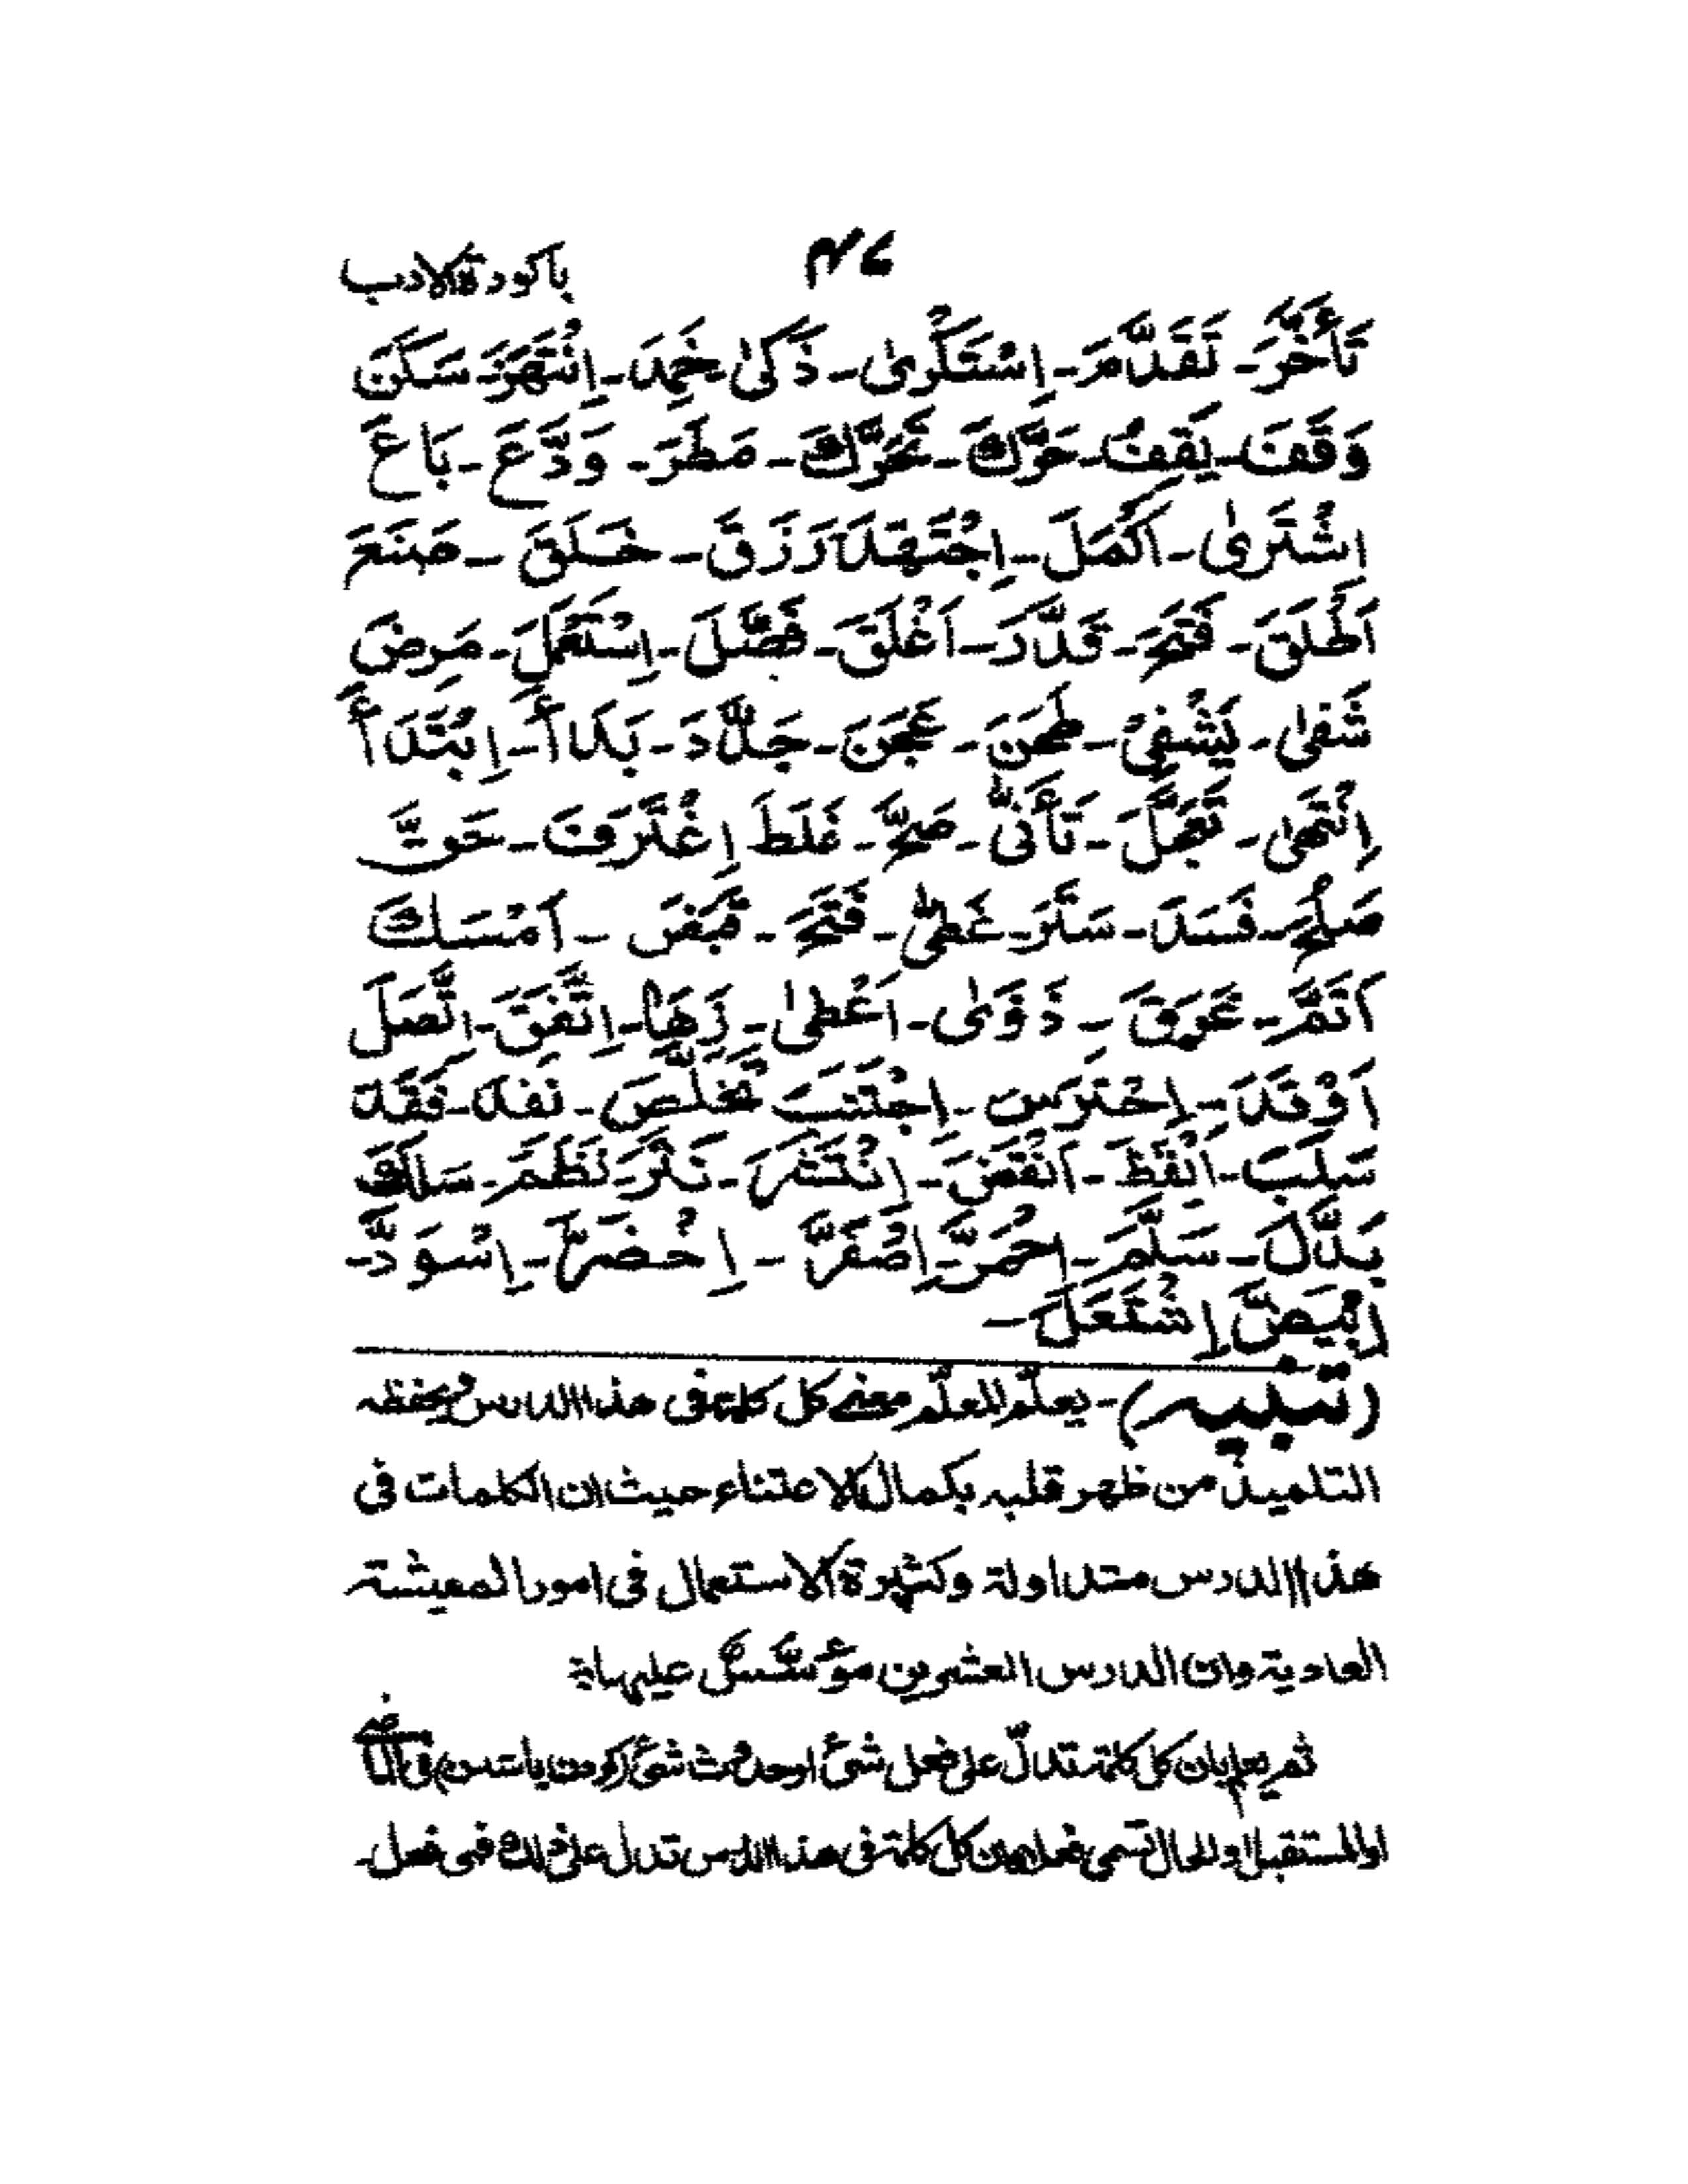 باكورة الادب
٤٦
تَأَخَّرَ - تَقَدَّمَ - اِسْتَكْرىٰ - ذَكىٰ - خَمِدَ - اِنْتَهَزَ - سَكَنَ
وَقَفَ - يَقِفُ - حَرَّكَ - تَحَرَّكَ - مَطَرَ - وَدَّعَ - بَاعَ
اشْتَرىٰ - اَكْمَلَ - اِجْتَهَدَ رَزَقَ - خَلَقَ - صَنَعَ
اَطْلَقَ - فَتَحَ - قَدَّرَ - اَغْلَقَ - فَضَّلَ - اِسْتَعْمَلَ - مَرِضَ
شَفىٰ - يَشْفِىْ - طَحَنَ - عَجَنَ - جَلَّدَ - بَدَأَ - اِبْتَدَأَ
اِنْتَهىٰ - تَعَجَّلَ - تَأَنّىٰ - صَحَّ - غَلَطَ اِغْتَرَفَ - حَوَتَّ
صَلُحَ - فَسَدَ - سَتَرَ - غَطّىٰ - فَتَحَ - قَبَضَ - اَمْسَكَ
اَتَمَّ - عَرِقَ - ذَوىٰ - اَعْطىٰ - زَهَا - اِتَّفَقَ - اتَّصَلَ
اَوْقَدَ - اِحْتَرَسَ - اِجْتَنَبَ تَخَلَّصَ - نَفِدَ - فَقَدَ
سَلَبَ - اَيْقَظَ - انْقَضَ - اِنْتَثَرَ - نَثَرَ - نَظَمَ - سَلَكَ
بَدَّلَ - سَلَّمَ - اِحْمَرَّ - اِصْفَرَّ - اِخْضَرَّ - اِسْوَدَّ -
اِبْيَضَّ اِشْتَعَلَ -
(تنبيه) - يعلّم المعلّم معنى كل كلمة فى هذا الدرس ويحفظه
التلميذ من ظهر قلبه بكمال الاعتناء حيث ان الكلمات فى
هذا الدرس متداولة وكثيرة الاستعمال فى امور المعيشة
العادية وان الدرس العشرين مؤسَّسٌ عليها
ثم يعلم بان كل كلمة تدلّ على فعل شئ او حدوث شئ فى الماضى
او المستقبل او الحال تسمى فعلا وان كل كلمة فى هذا الدرس تدل على ذلك فهى فعل -